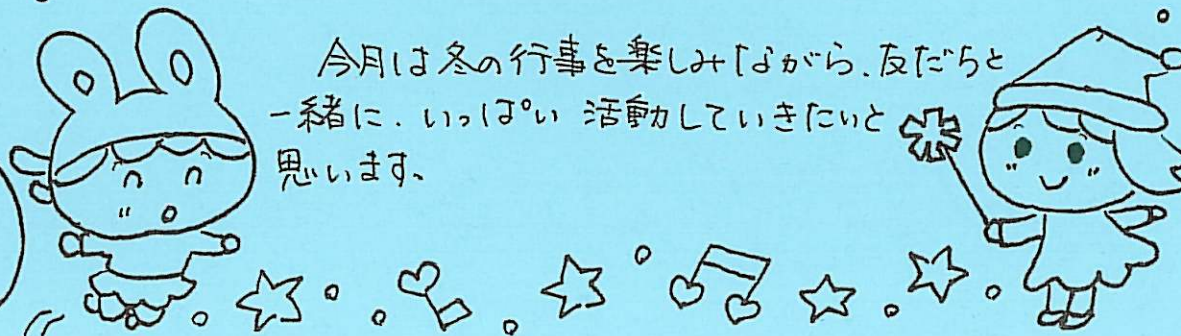 今月は冬の行事を楽しみながら、友だちと
一緒に、いっぱい 活動していきたいと
思います。